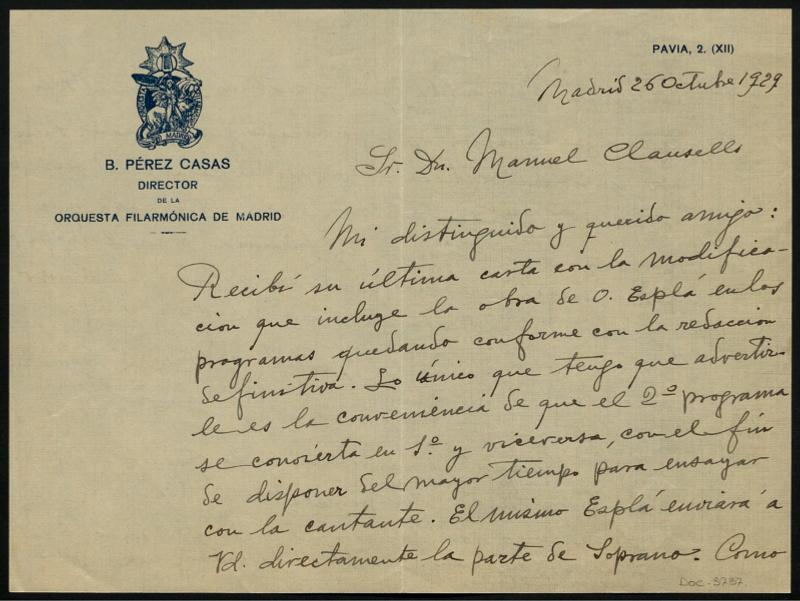 PAVIA, 2. (XII)
Madrid 26 Octubre 1929
MADRID
B. PÉREZ CASAS
DIRECTOR
DE LA
ORQUESTA FILARMÓNICA DE MADRID
Sr. Dn. Manuel Clausells
Mi distinguido y querido amigo:
Recibí su última carta con la modifica-
cion que incluye la obra de O. Esplá en los
programas quedando conforme con la redaccion
definitiva. Lo único que tengo que advertir-
le es la conveniencia de que el 2º programa
se convierta en 1º y viceversa, con el fin
de disponer del mayor tiempo para ensayar
con la cantante. El mismo Esplá enviará a
Vd. directamente la parte de Soprano. Como
Doc-3737